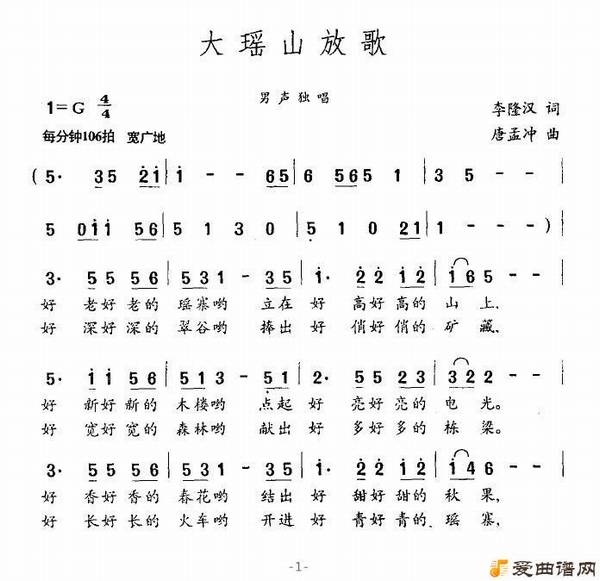 大瑶山放歌
男声独唱
1=G 4/4
李隆汉 词
每分钟106拍 宽广地
唐孟冲 曲
( 5· 35 21 | 1 - - 65 | 6 565 1 | 3 5 - - |
5 011 56 | 5 1 3 0 | 5 1 0 21 | 1 - - - )
3· 55 56 | 531 - 35 | 1· 22 12 | 165 - - |
好 老好老的 瑶寨哟 立在好 高好高的 山上,
好 深好深的 翠谷哟 捧出好 俏好俏的 矿藏,
5· 11 56 | 513 - 51 | 2· 55 23 | 322 - - |
好 新好新的 木楼哟 点起好 亮好亮的 电光。
好 宽好宽的 森林哟 献出好 多好多的 栋梁。
3· 55 56 | 531 - 35 | 1· 22 12 | 146 - - |
好 香好香的 春花哟 结出好 甜好甜的 秋果,
好 长好长的 火车哟 开进好 青好青的 瑶寨,
-1-
爱曲谱网